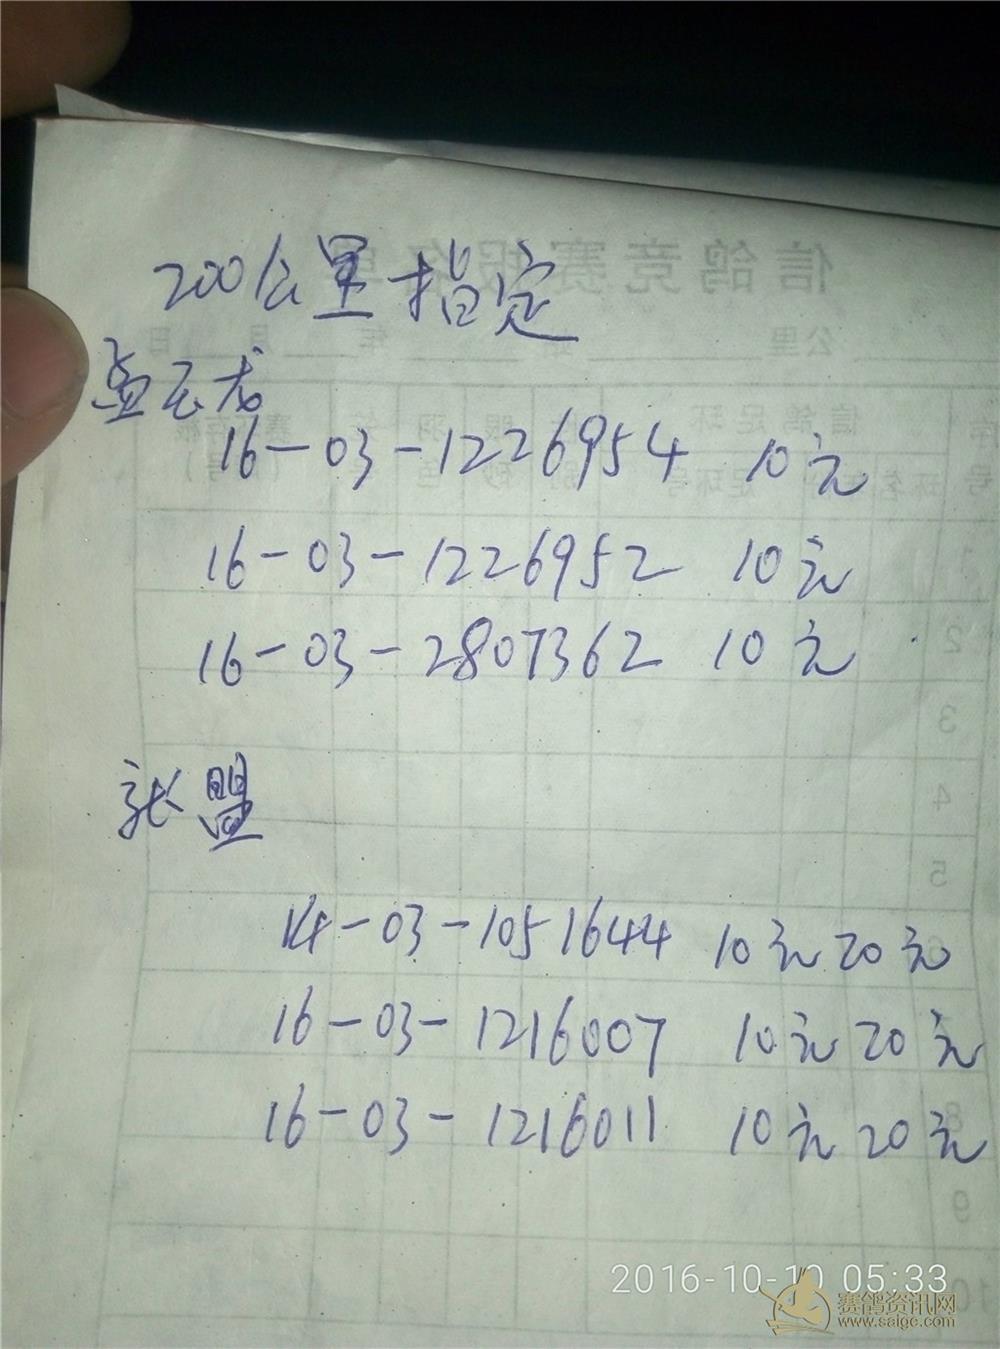 200公里指定
孟玉龙
16-03-1226954 10元
16-03-1226952 10元
16-03-2807362 10元
张盟
14-03-1051644 10元20元
16-03-1216007 10元20元
16-03-1216011 10元20元
信鸽竞赛报名单
公里 站 年 月 日
信鸽足环 眼 羽
1
2
3
4
5
6
8
9
10
2016-10-10 05:33
赛鸽资讯网
www.saige.com